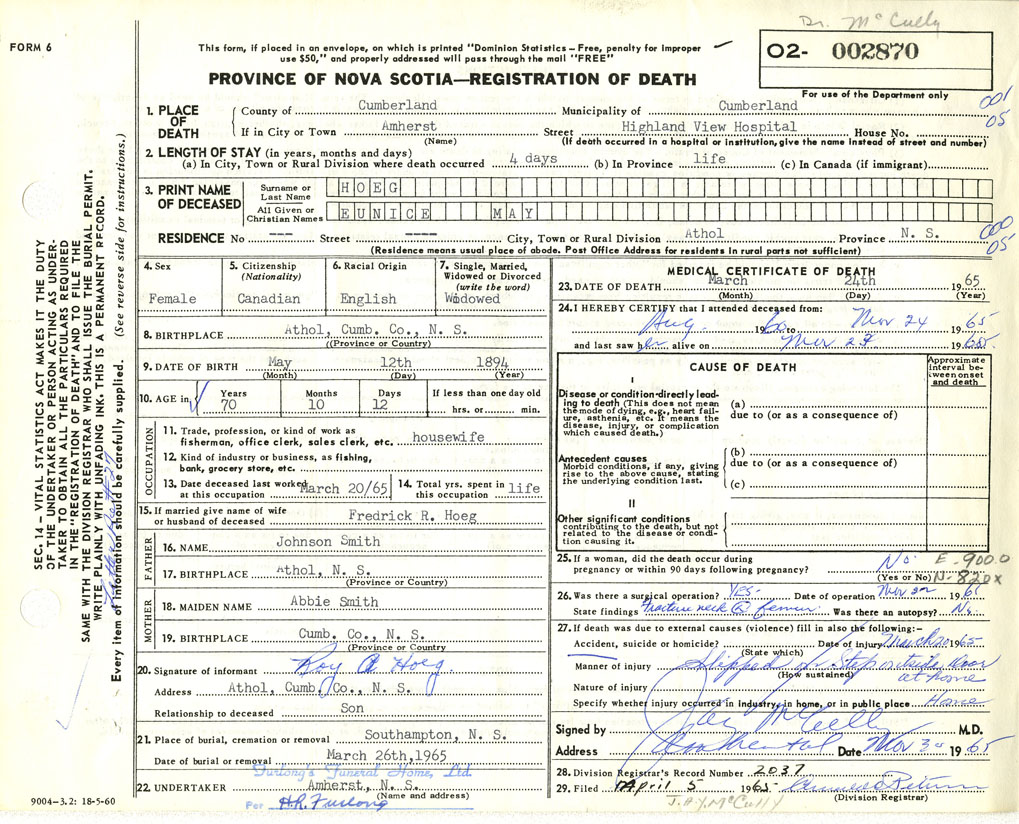 Dr. McCully
FORM 6
This form, if placed in an envelope, on which is printed "Dominion Statistics – Free, penalty for improper
use $50," and properly addressed will pass through the mail "FREE"
O2- 002870
For use of the Department only
PROVINCE OF NOVA SCOTIA—REGISTRATION OF DEATH
001
05
1. PLACE OF DEATH
County of Cumberland Municipality of Cumberland
If in City or Town Amherst Street Highland View Hospital House No.
(Name) (If death occurred in a hospital or institution, give the name instead of street and number)
2. LENGTH OF STAY (in years, months and days)
(a) In City, Town or Rural Division where death occurred 4 days (b) In Province life (c) In Canada (if immigrant)
3. PRINT NAME OF DECEASED
Surname or Last Name HOEG
All Given or Christian Names EUNICE MAY
000
05
RESIDENCE No --- Street ---- City, Town or Rural Division Athol Province N. S.
(Residence means usual place of abode. Post Office Address for residents in rural parts not sufficient)
4. Sex
Female
5. Citizenship
(Nationality)
Canadian
6. Racial Origin
English
7. Single, Married,
Widowed or Divorced
(write the word)
Widowed
8. BIRTHPLACE Athol, Cumb. Co., N. S.
(Province or Country)
9. DATE OF BIRTH May 12th 1894
(Month) (Day) (Year)
10. AGE in Years 70 Months 10 Days 12 If less than one day old
hrs. or min.
OCCUPATION
11. Trade, profession, or kind of work as
fisherman, office clerk, sales clerk, etc. housewife
12. Kind of industry or business, as fishing,
bank, grocery store, etc.
13. Date deceased last worked
at this occupation March 20/65
14. Total yrs. spent in
this occupation life
15. If married give name of wife
or husband of deceased Fredrick R. Hoeg
FATHER
16. NAME Johnson Smith
17. BIRTHPLACE Athol, N. S.
(Province or Country)
MOTHER
18. MAIDEN NAME Abbie Smith
19. BIRTHPLACE Cumb. Co., N. S.
(Province or Country
20. Signature of informant Roy A Hoeg.
Address Athol, Cumb. Co., N. S.
Relationship to deceased Son
21. Place of burial, cremation or removal Southampton, N. S.
Date of burial or removal March 26th, 1965
Furlong's Funeral Home, Ltd.
22. UNDERTAKER Amherst, N. S.
(Name and address)
Per H.R. Furlong
9004–3.2: 18-5-60
MEDICAL CERTIFICATE OF DEATH
23. DATE OF DEATH March 24th 1965
(Month) (Day) (Year)
24. I HEREBY CERTIFY that I attended deceased from:
Aug. 1960 to Mar 24 1965
and last saw her alive on Mar 24 1965
CAUSE OF DEATH
Approximate
interval be-
tween onset
and death
I
Disease or condition directly lead-
ing to death (This does not mean
the mode of dying, e.g., heart fail-
ure, asthenia, etc. It means the
disease, injury, or complication
which caused death.)
(a)
due to (or as a consequence of)
Antecedent causes
Morbid conditions, if any, giving
rise to the above cause, stating
the underlying condition last.
(b)
due to (or as a consequence of)
(c)
II
Other significant conditions
contributing to the death, but not
related to the disease or condi-
tion causing it.
25. If a woman, did the death occur during
pregnancy or within 90 days following pregnancy? No
(Yes or No)
E-900.0
N-820x
26. Was there a surgical operation? YES- Date of operation Mar 22 1965
State findings fracture neck @ femur Was there an autopsy? No
27. If death was due to external causes (violence) fill in also the following:–
Accident, suicide or homicide? Date of injury March 20 1965
(State which)
Manner of injury Slipped on step outside door
(How sustained)
at home
Nature of injury
Specify whether injury occurred in industry, in home, or in public place Home
Signed by Jay McCully M.D.
Address Date Mar 30 1965
28. Division Registrar's Record Number 2037
29. Filed April 5 1965
(Division Registrar)
J. A. Y. McCully
SEC. 14 – VITAL STATISTICS ACT MAKES IT THE DUTY
OF THE UNDERTAKER OR PERSON ACTING AS UNDER-
TAKER TO OBTAIN ALL THE PARTICULARS REQUIRED
IN THE "REGISTRATION OF DEATH" AND TO FILE THE
SAME WITH THE DIVISION REGISTRAR WHO SHALL ISSUE THE BURIAL PERMIT.
WRITE PLAINLY WITH UNFADING INK. THIS IS A PERMANENT RECORD.
Every item of information should be carefully supplied. (See reverse side for instructions.)